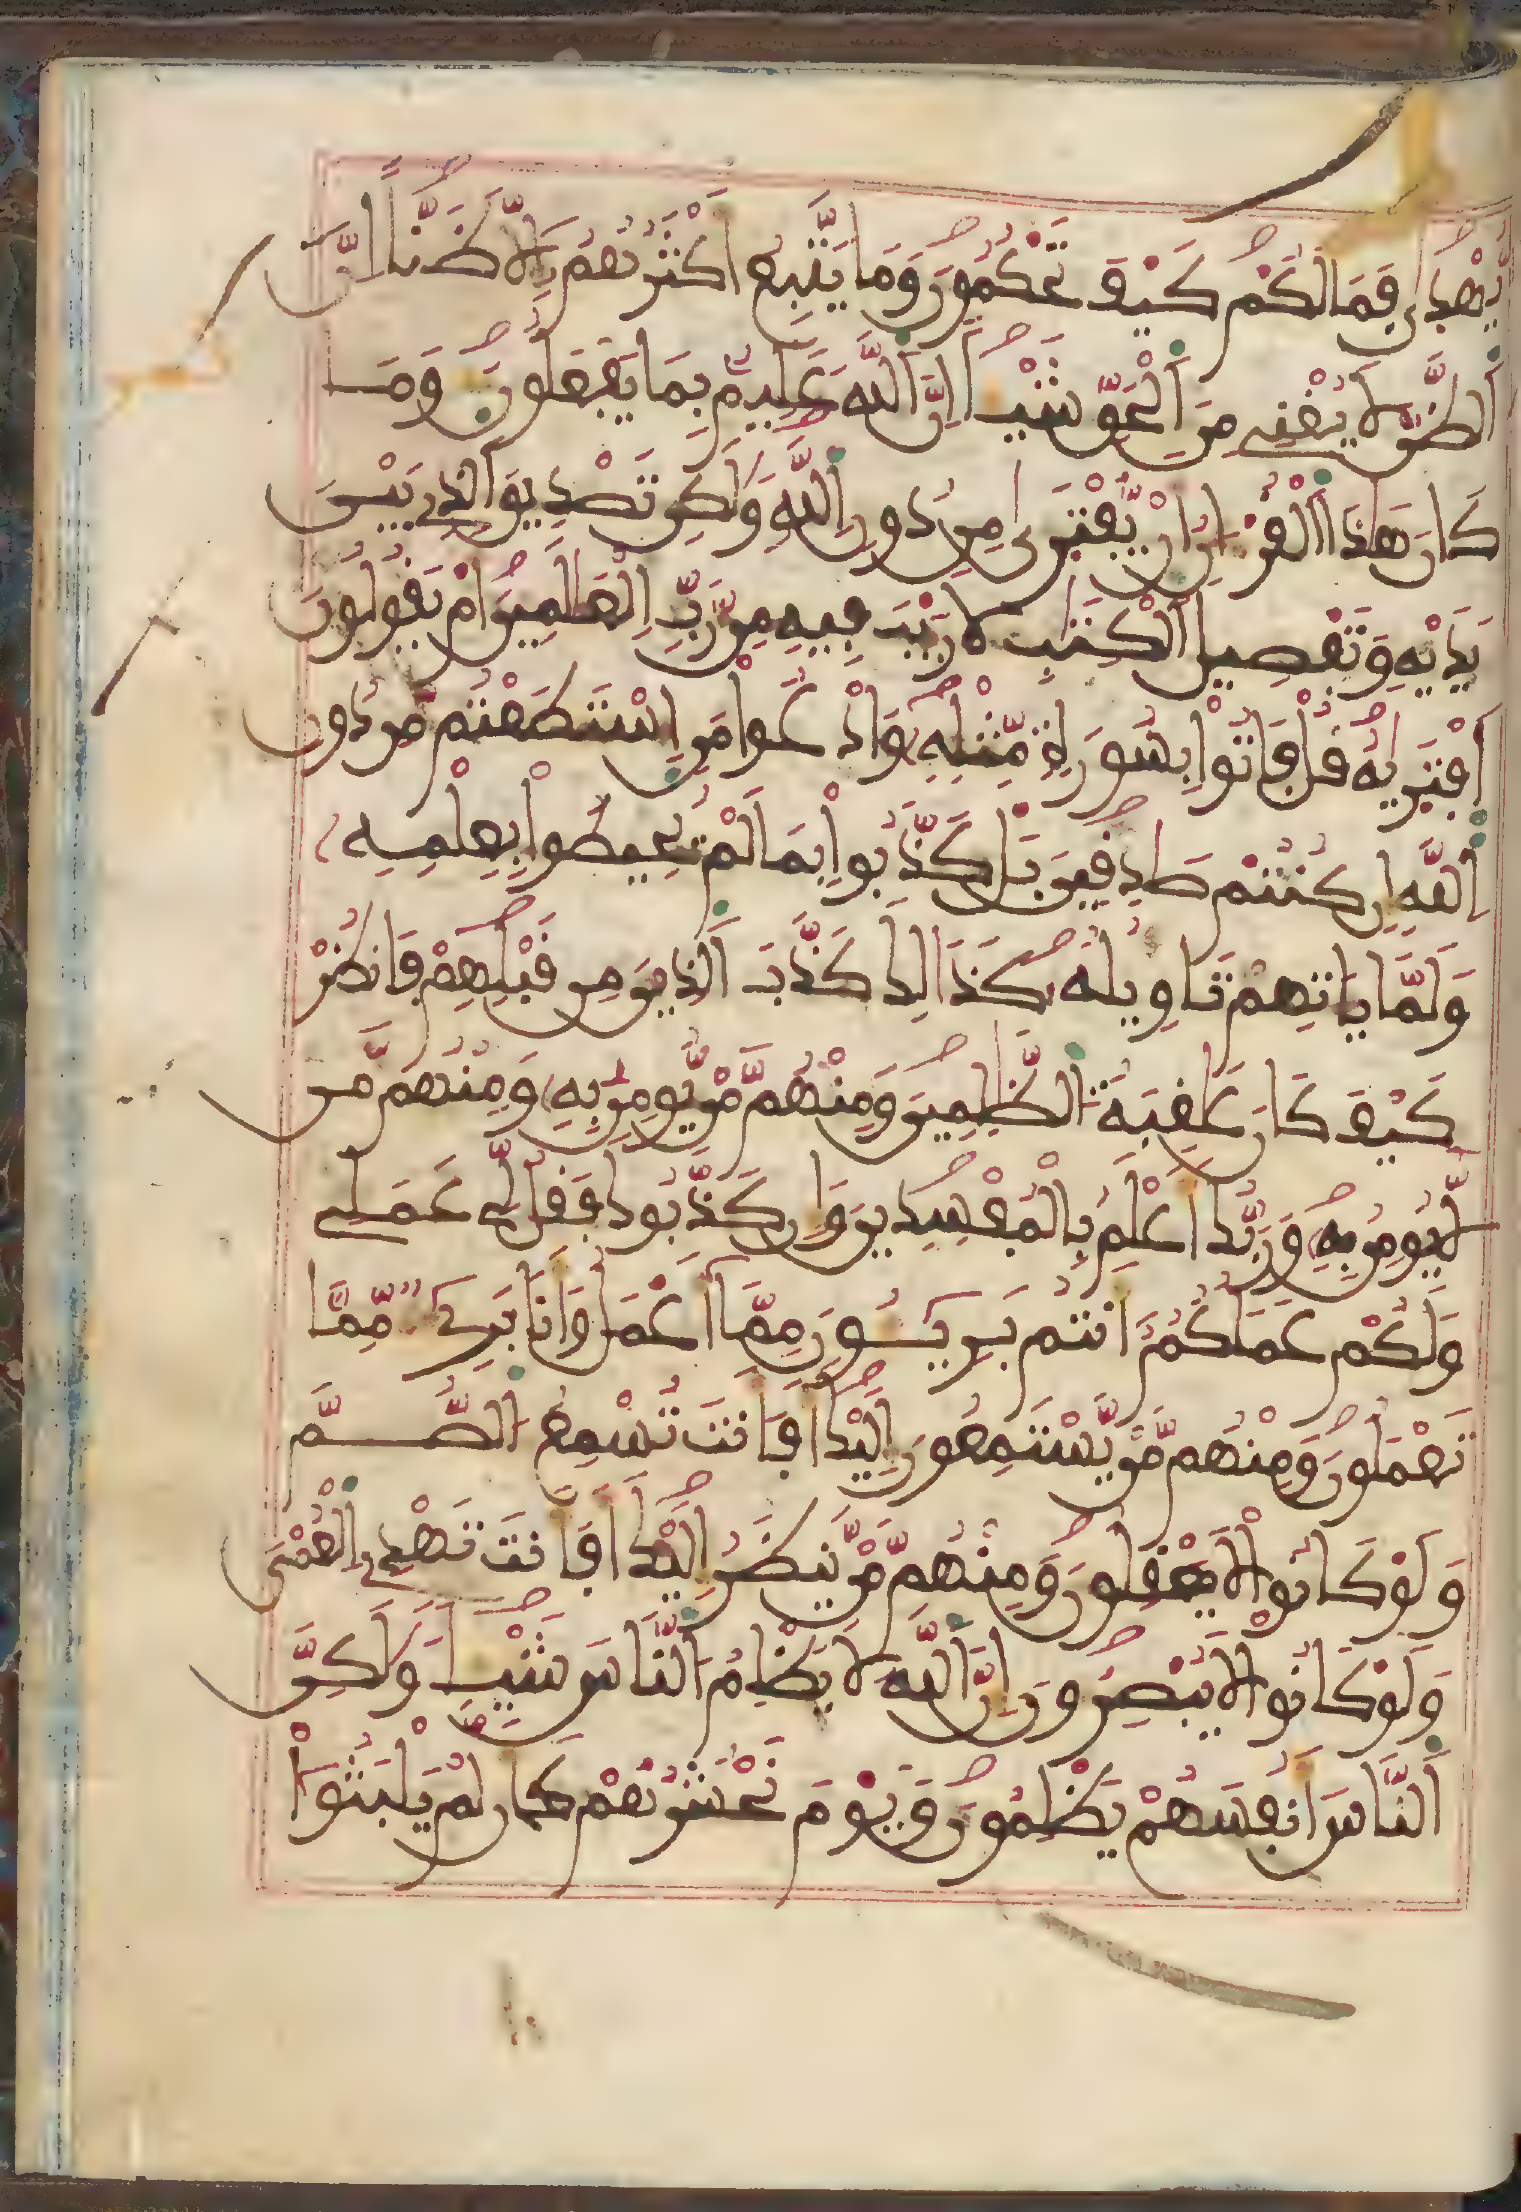 يُّهْدَىٰ فَمَا لَكُمْ كَيْفَ تَحْكُمُونَ وَمَا يَتَّبِعُ أَكْثَرُهُمُ إِلَّا ظَنًّا إِنَّ
اَلظَّنَّ لَا يُغْنِے مِنَ اَلْحَقِّ شَيْـًٔا اِنَّ اَللَّهَ عَلِيمٌۢ بِمَا يَفْعَلُونَ وَمَا
كَانَ هَٰذَا اَلْقُرْءَانُ أَنْ يُّفْتَرَىٰ مِن دُونِ اِللَّهِ وَلَٰكِن تَصْدِيقَ اَلذِے بَيْنَ
يَدَيْهِ وَتَفْصِيلَ اَلْكِتَٰبِ لَا رَيْبَ فِيهِ مِن رَّبِّ اِلْعَٰلَمِينَ أَمْ يَقُولُونَ
اَفْتَرَيٰهُ قُلْ فَاتُوا بِسُورَةٖ مِّثْلِهِۦ وَادْعُوا مَنِ اِسْتَطَعْتُم مِّن دُونِ
اِللَّهِ إِن كُنتُمْ صَٰدِقِينَ بَلْ كَذَّبُوا بِمَا لَمْ يُحِيطُوا بِعِلْمِهِۦ
وَلَمَّا يَاتِهِمْ تَاوِيلُهُۥ كَذَٰلِكَ كَذَّبَ اَلذِينَ مِن قَبْلِهِمْ فَانظُرْ
كَيْفَ كَانَ عَٰقِبَةُ اُلظَّٰلِمِينَ وَمِنْهُم مَّنْ يُّومِنُ بِهِۦ وَمِنْهُم مَّن
لَّا يُومِنُ بِهِۦ وَرَبُّكَ أَعْلَمُ بِالْمُفْسِدِينَ وَإِن كَذَّبُوكَ فَقُل لِّے عَمَلِے
وَلَكُمْ عَمَلُكُمُ أَنتُم بَرِيٓـُٔونَ مِمَّا أَعْمَلُ وَأَنَا بَرِےٓءٌ مِّمَّا
تَعْمَلُونَ وَمِنْهُم مَّنْ يَّسْتَمِعُونَ إِلَيْكَ أَفَأَنتَ تُسْمِعُ اُلصُّمَّ
وَلَوْ كَانُوا لَا يَعْقِلُونَ وَمِنْهُم مَّنْ يَّنظُرُ إِلَيْكَ أَفَأَنتَ تَهْدِے اِلْعُمْىَ
وَلَوْ كَانُوا لَا يُبْصِرُونَ إِنَّ اَللَّهَ لَا يَظْلِمُ اُلنَّاسَ شَيْـًٔا وَلَٰكِنَّ
اَلنَّاسَ أَنفُسَهُمْ يَظْلِمُونَ وَيَوْمَ نَحْشُرُهُمْ كَأَن لَّمْ يَلْبَثُوا